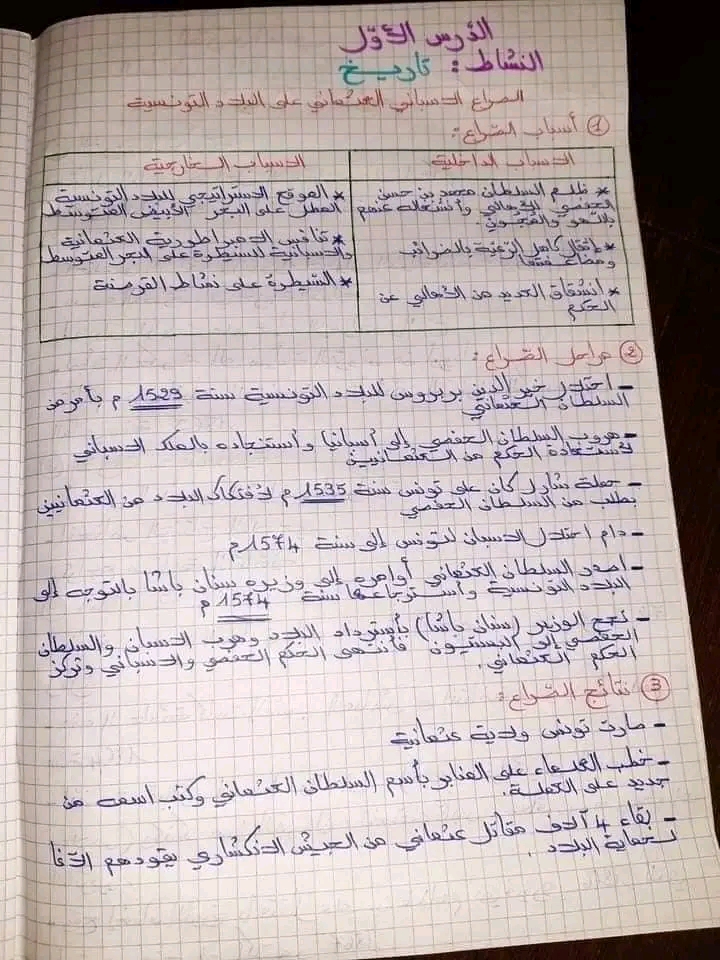 الدرس الأوّل
النشاط: تاريخ
الصراع الاسباني العثماني على البلاد التونسية
1 أسباب الصّراع:
الاسباب الداخلية
* ظلم السلطان محمد بن حسن
الحفصي للأهالي وأنشغاله عنهم
باللهو والمجون.
* إثقال كاهل الرّعية بالضرائب
ومضاعفتها
* انشقاق العديد من الأهالي عن
الحكم
الاسباب الخارجية
* الموقع الاستراتيجي للبلاد التونسية
المطل على البحر الأبيض المتوسط
* تنافس الامبراطورية العثمانية
والاسبانية للسيطرة على البحر المتوسط
* السّيطرة على نشاط القرصنة
2 مراحل الصّراع:
- احتلال خير الدين بربروس للبلاد التونسية سنة 1529 م بأمر من
السلطان العثماني
- هروب السلطان الحفصي إلى أسبانيا وأستنجاده بالملك الاسباني
لاستعادة الحكم من العثمانيين
- حملة شارل كان على تونس سنة 1535 م لافتكاك البلاد من العثمانيين
بطلب من السلطان الحفصي
- دام احتلال الاسبان لتونس إلى سنة 1574 م
- أصدر السلطان العثماني أوامره إلى وزيره سنان باشا بالتوجه إلى
البلاد التونسية وأسترجاعها سنة 1574 م
- نجح الوزير (سنان باشا) بأسترداد البلاد وهرب الاسبان والسلطان
الحفصي إلى البستيون فأنتهى الحكم الحفصي والاسباني وتركز
الحكم العثماني.
3 نتائج الصّراع:
- صارت تونس ولاية عثمانية
- خطب العلماء على المنابر بأسم السلطان العثماني وكتب اسمه من
جديد على العملة.
- بقاء 4 آلاف مقاتل عثماني من الجيش الانكشاري يقودهم الآغا
لحماية البلاد.